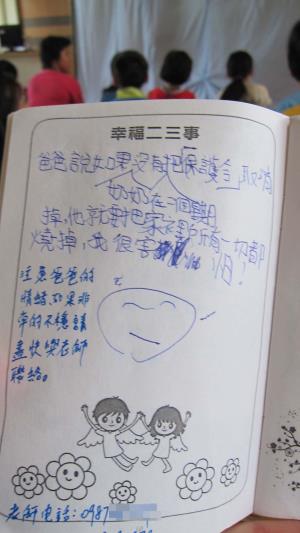 幸福二三事
爸爸說如果沒有把保護令取消
奶奶在一個月期
掉,他就要把家裡所有一切都
燒掉,我很害怕
注意爸爸的
情緒,如果非
常的不穩請
盡快與老師
聯絡。
老師電話:0987